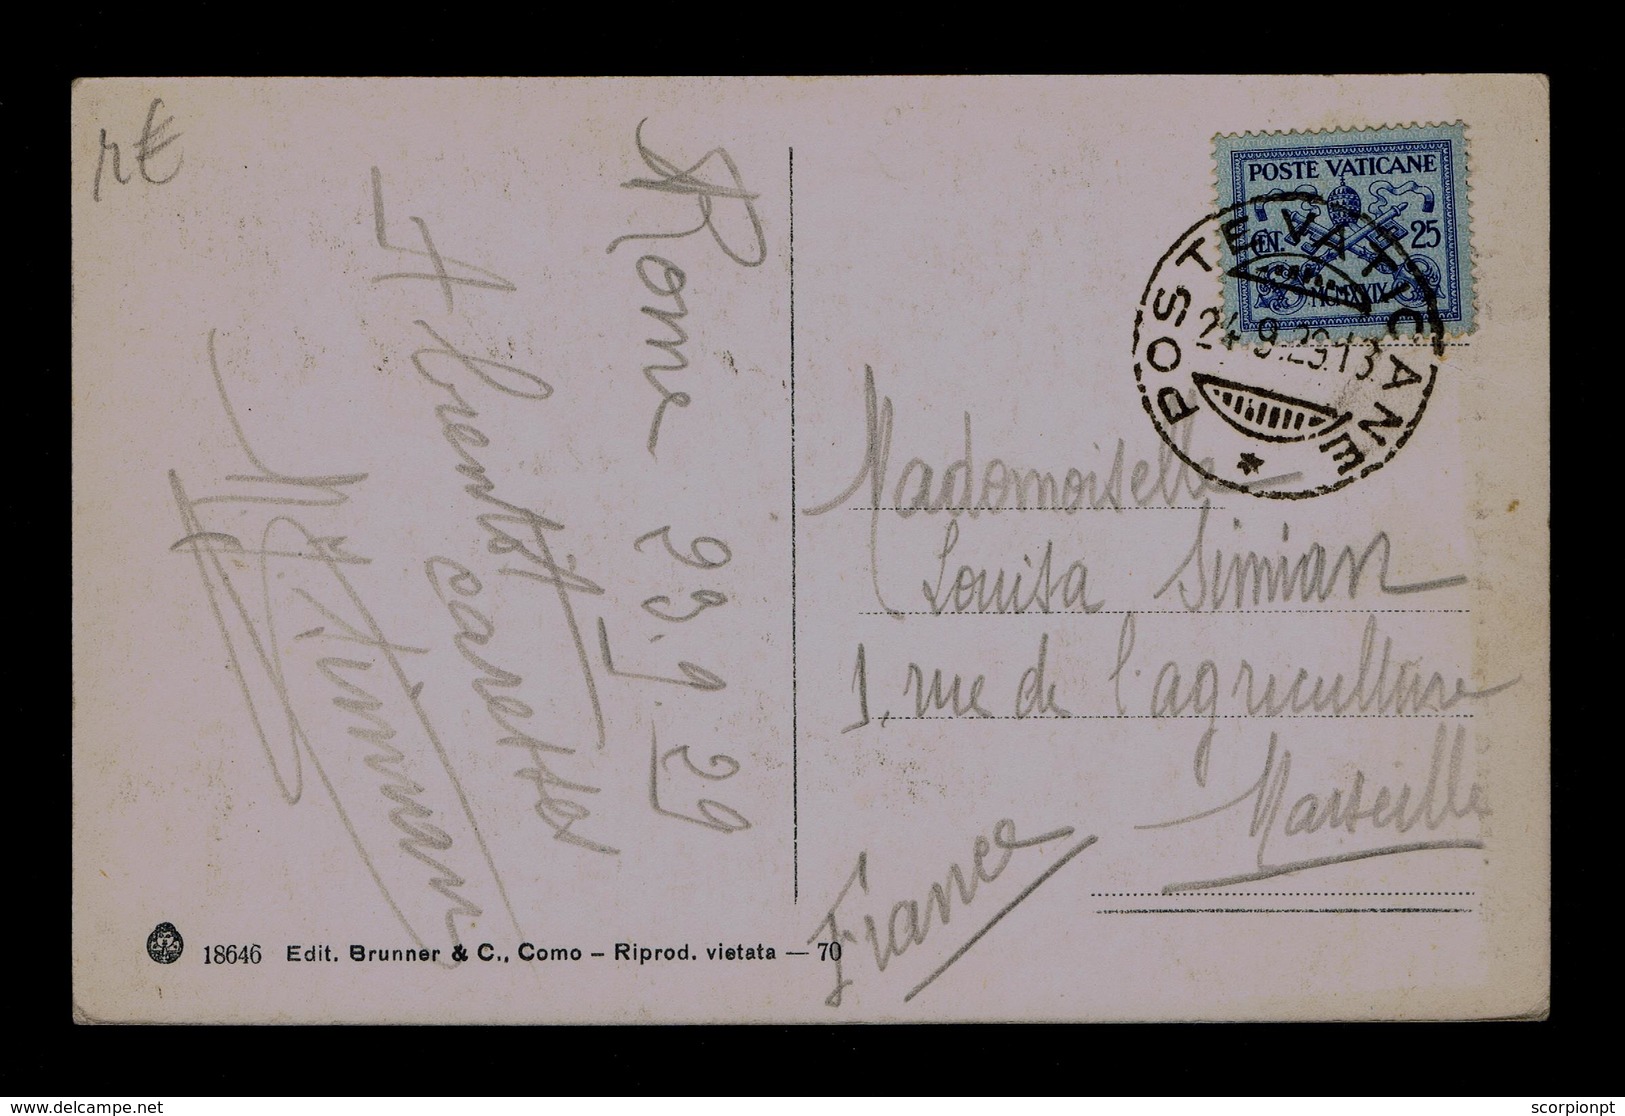 Rome 23.9.29
A bientôt
POSTE VATICANE
CEN. 25
MCMXXIX
POSTE VATICANE
24.9.29.13
Mademoiselle
Louisa Simian
1, rue de l'agriculture
Marseille
France
18646 Edit. Brunner & C., Como – Riprod. vietata — 70
scorpionpt